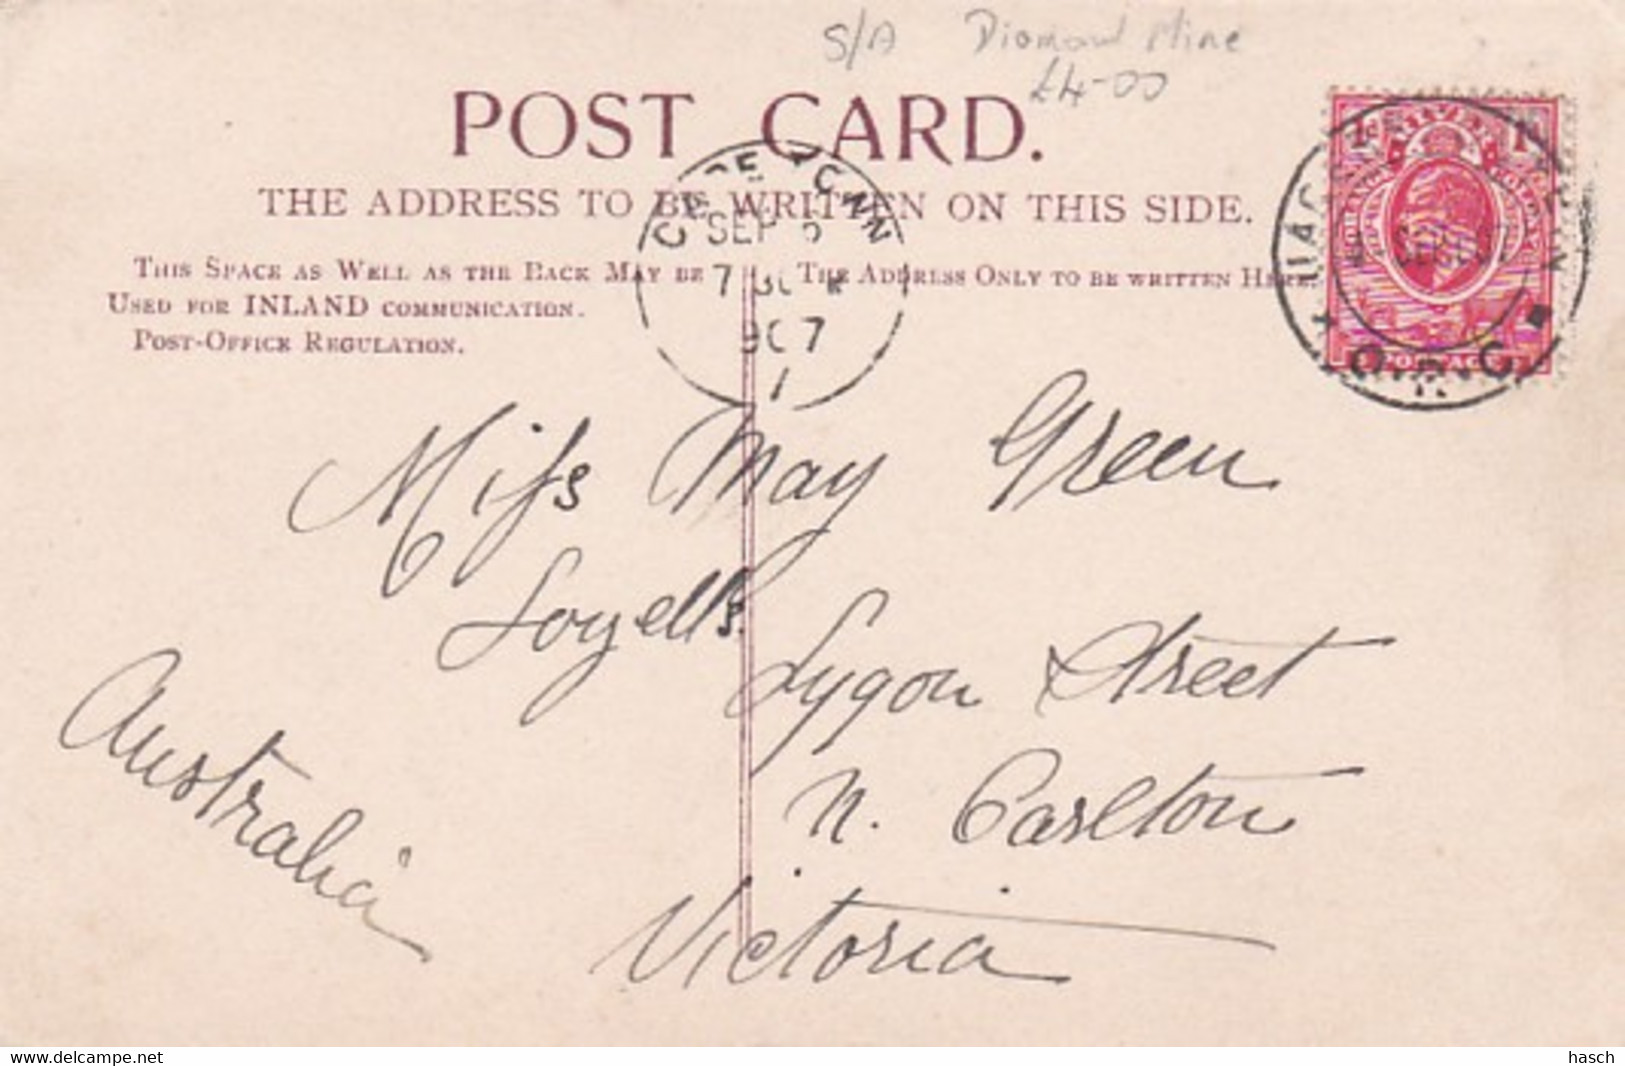 S/A Diamond Mine
£4-00
POST CARD.
THE ADDRESS TO BE WRITTEN ON THIS SIDE.
THIS SPACE AS WELL AS THE BACK MAY BE
USED FOR INLAND COMMUNICATION.
POST-OFFICE REGULATION.
THE ADDRESS ONLY TO BE WRITTEN HERE.
CAPE TOWN
SEP
7
907
1
1d 1d
POSTAGE
O.R.C.
Miss May Green
Loyells.
Lygon Street
N. Carlton
Victoria
Australia
www.delcampe.net
hasch